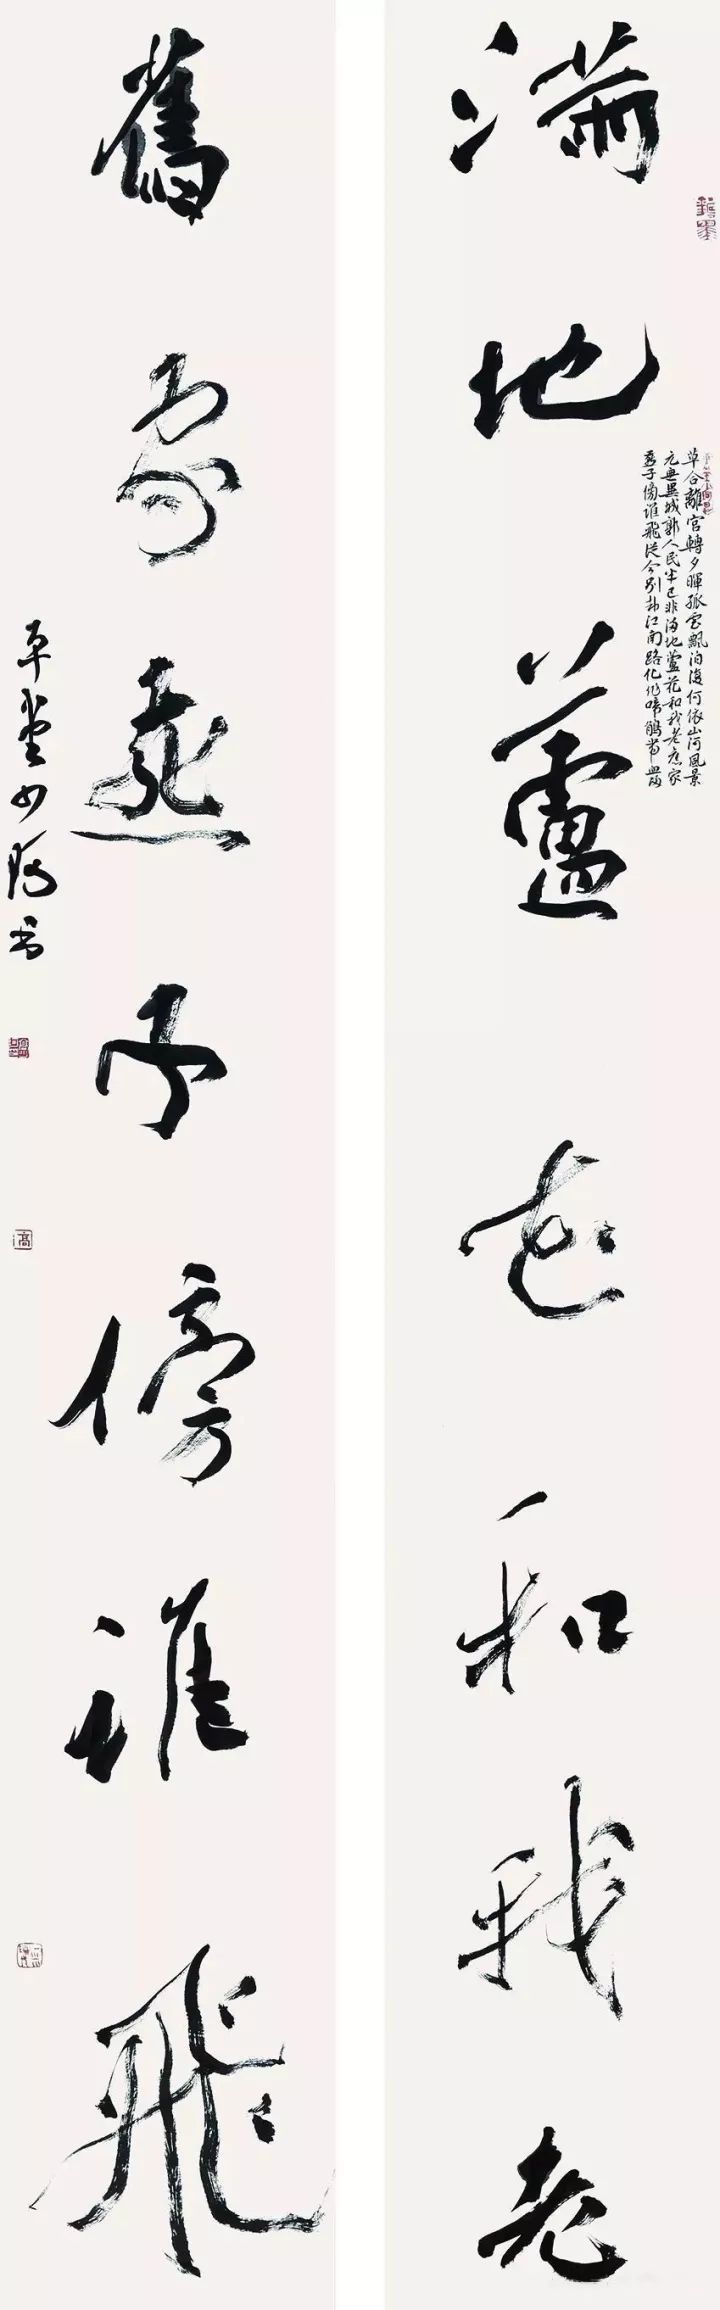 滿地蘆花和我老
草合離宮轉夕暉孤雲飄泊復何依山河風景
元無異城郭人民半已非滿地蘆花和我老舊家
燕子傍誰飛從今別却江南路化作啼鵑帶血歸
舊家燕子傍誰飛
草堂少書
高